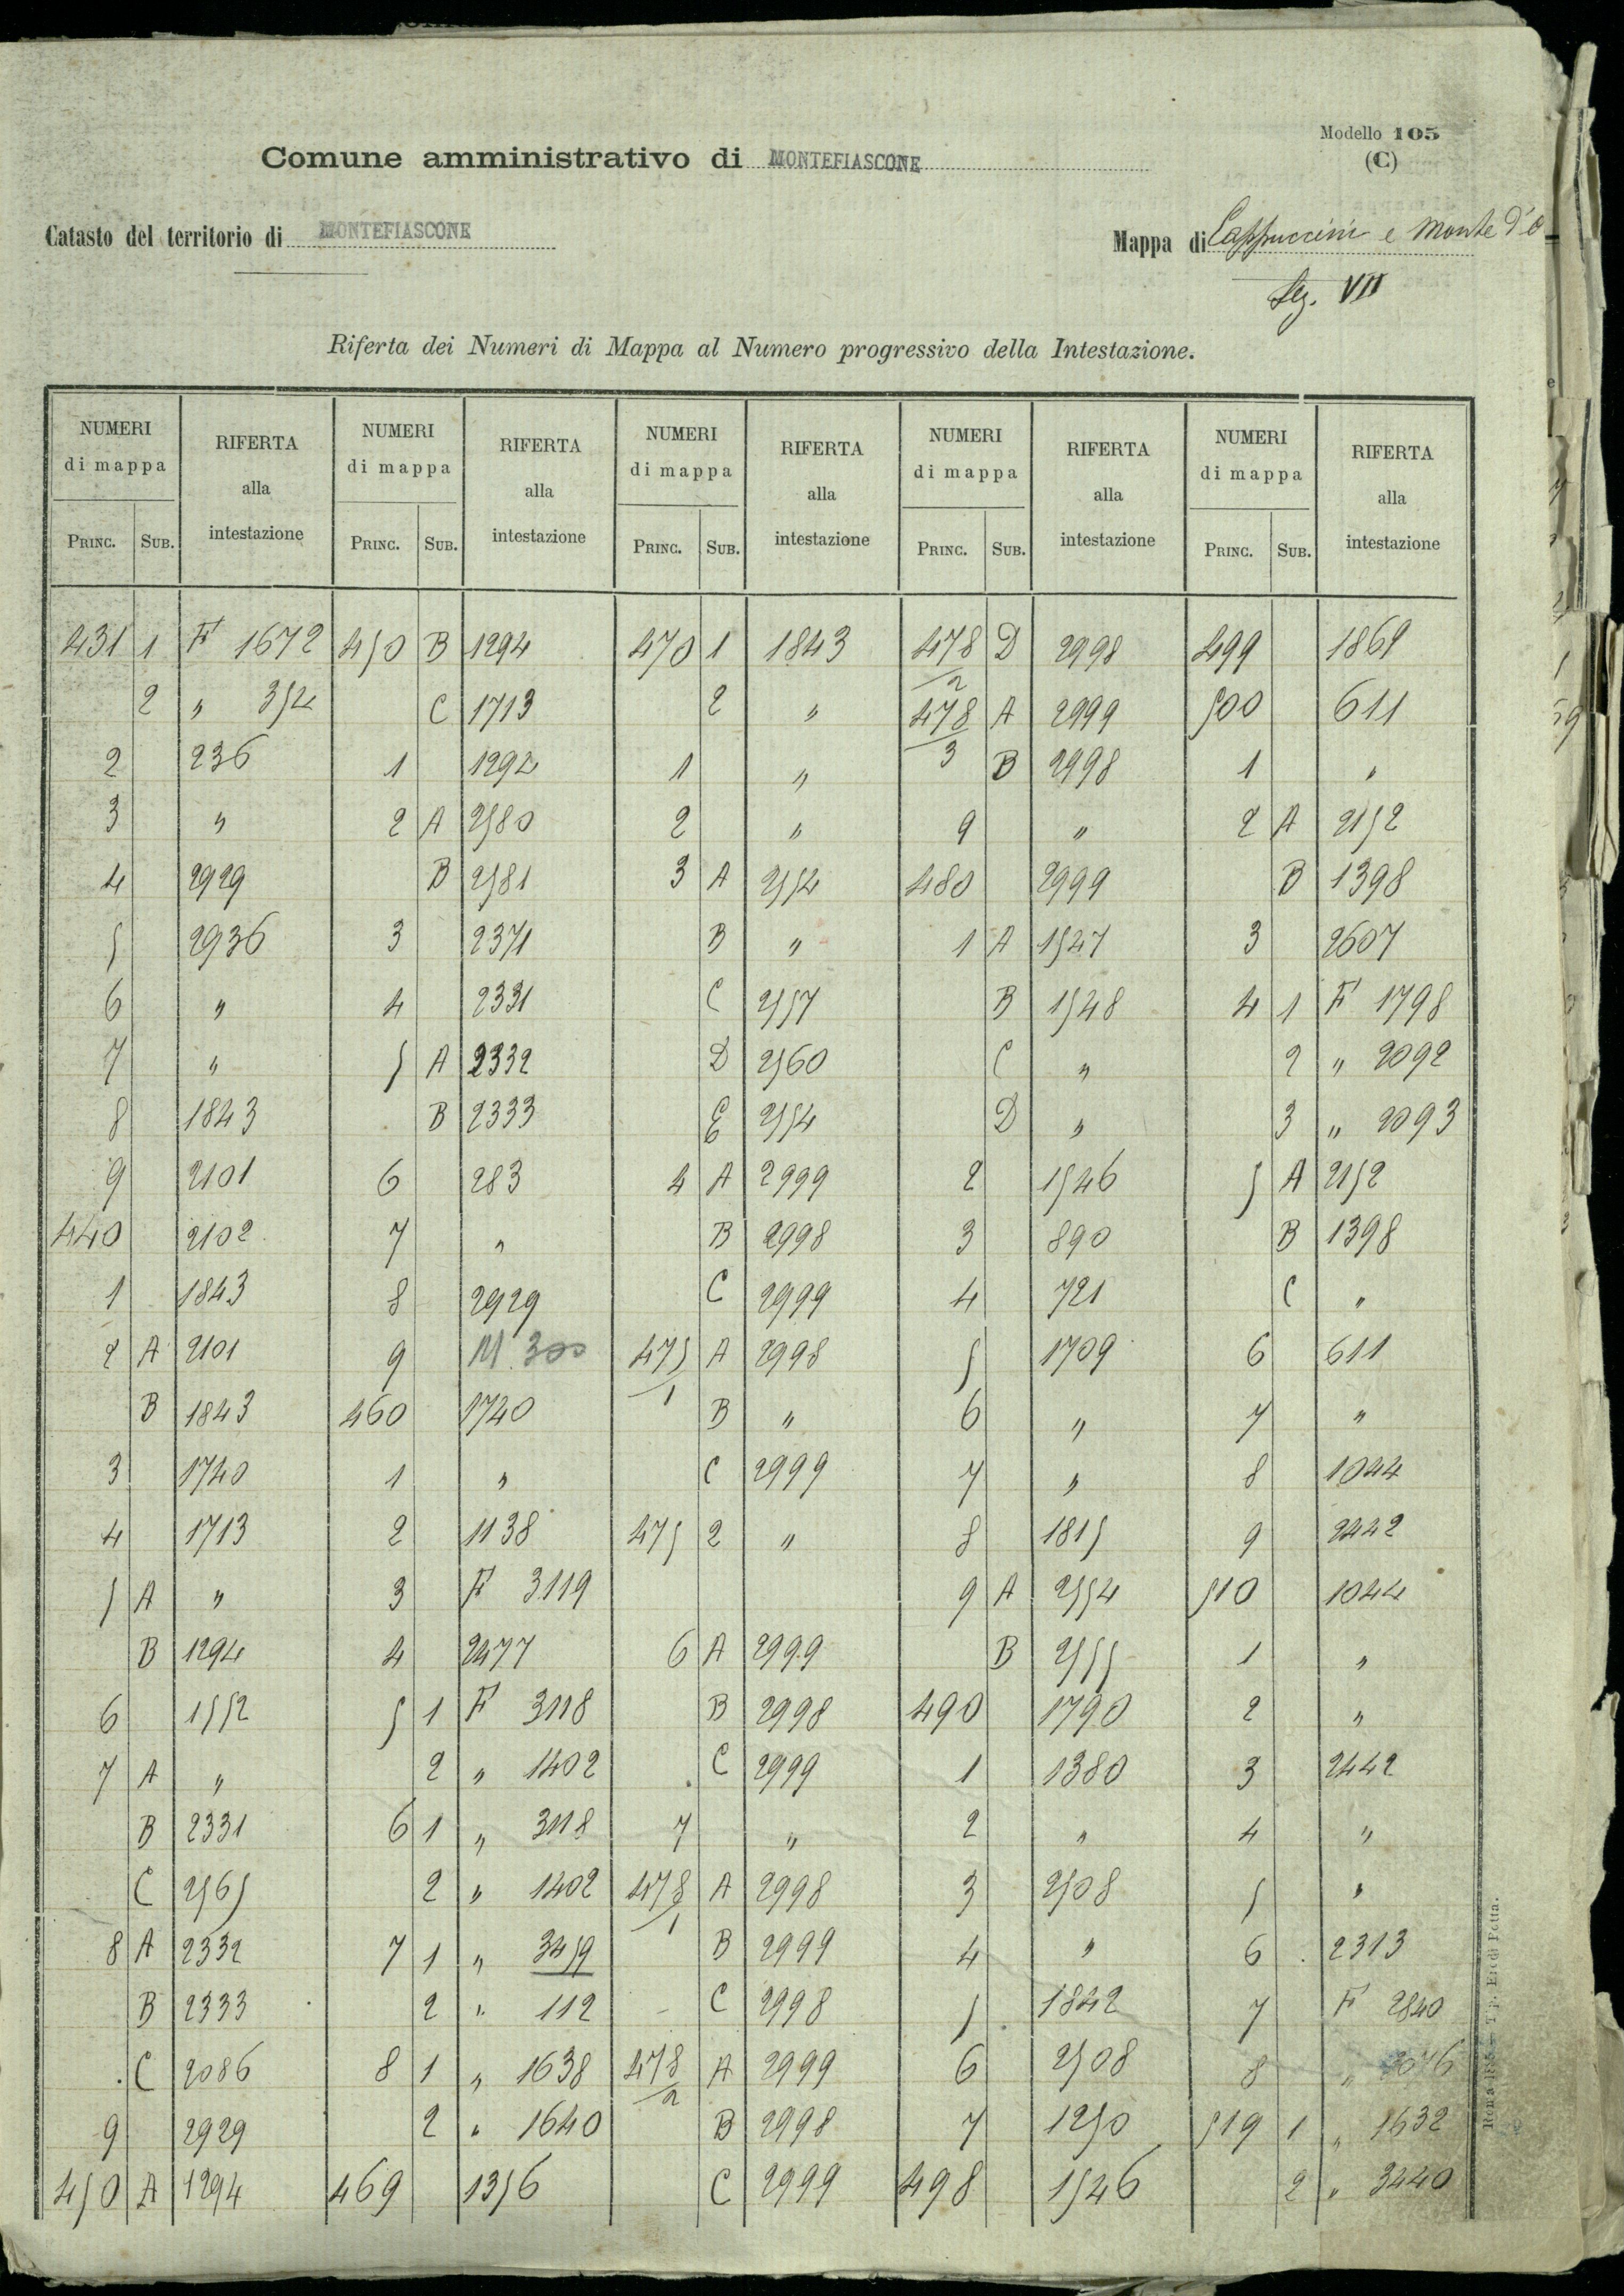 Modello 105
(C)
Comune amministrativo di MONTEFIASCONE
Catasto del territorio di MONTEFIASCONE
Mappa di Cappuccini e Monte d'o
Sez. VII
Riferta dei Numeri di Mappa al Numero progressivo della Intestazione.
NUMERI di mappa RIFERTA alla intestazione NUMERI di mappa RIFERTA alla intestazione NUMERI di mappa RIFERTA alla intestazione NUMERI di mappa RIFERTA alla intestazione NUMERI di mappa RIFERTA alla intestazione
PRINC. SUB. PRINC. SUB. PRINC. SUB. PRINC. SUB. PRINC. SUB.
431 1 F 1672 450 B 1294 470 1 1843 478/2 D 2998 499 1869
2 " 354 C 1713 2 " 478/3 A 2999 500 611
2 236 1 1294 1 " B 2998 1 "
3 " 2 A 2580 2 " 9 " 2 A 2152
4 2929 B 2581 3 A 2554 480 2999 B 1398
5 2936 3 2371 B " 1 A 1547 3 2607
6 " 4 2331 C 2557 B 1548 4 1 F 1798
7 " 5 A 2332 D 2560 C " 2 " 2092
8 1843 B 2333 E 2554 D " 3 " 2093
9 2101 6 283 4 A 2999 2 1546 5 A 2152
440 2102 7 " B 2998 3 890 B 1398
1 1843 8 2929 C 2999 4 721 C "
2 A 2101 9 M. 300 475/1 A 2998 5 1709 6 611
B 1843 460 1740 B " 6 " 7 "
3 1740 1 " C 2999 7 " 8 1044
4 1713 2 1138 475 2 " 8 1815 9 2442
5 A " 3 F 3119 9 A 2554 510 1044
B 1294 4 2477 6 A 2999 B 2555 1 "
6 1552 5 1 F 3118 B 2998 490 1790 2 "
7 A " 2 " 1402 C 2999 1 1380 3 2442
B 2331 6 1 " 3118 7 " 2 " 4 "
C 2565 2 " 1402 478/1 A 2998 3 2508 5 "
8 A 2332 7 1 " 3459 B 2999 4 " 6 2313
B 2333 2 " 112 C 2998 5 1842 7 F 2840
C 2086 8 1 " 1638 478/2 A 2999 6 2508 8 "
9 2929 2 " 1640 B 2998 7 1250 519 1 " 1632
450 A 1294 469 1356 C 2999 498 1546 2 " 3440